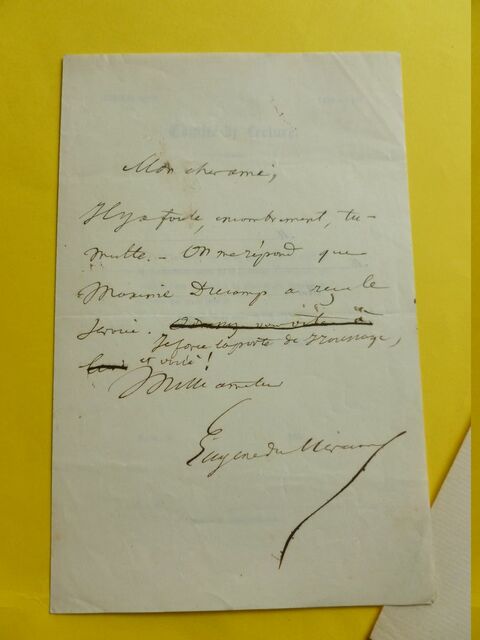 Comité de lecture.
Mon cher ami,
Il y a foule, encombrement, tu-
multe. – On me répond que
Maxime Ducamp a reçu le
service.
Je force la porte de Houssaye,
et voici !
Mille amitiés
Eugène de Mirecourt